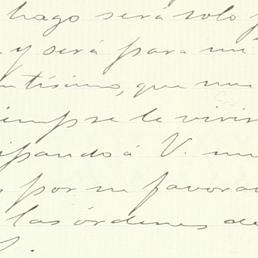 hago será solo p
y será para mi
ntísimo, que nu
iempre le vivir
ipando á V. mu
s por su favorac
las órdenes de
S.